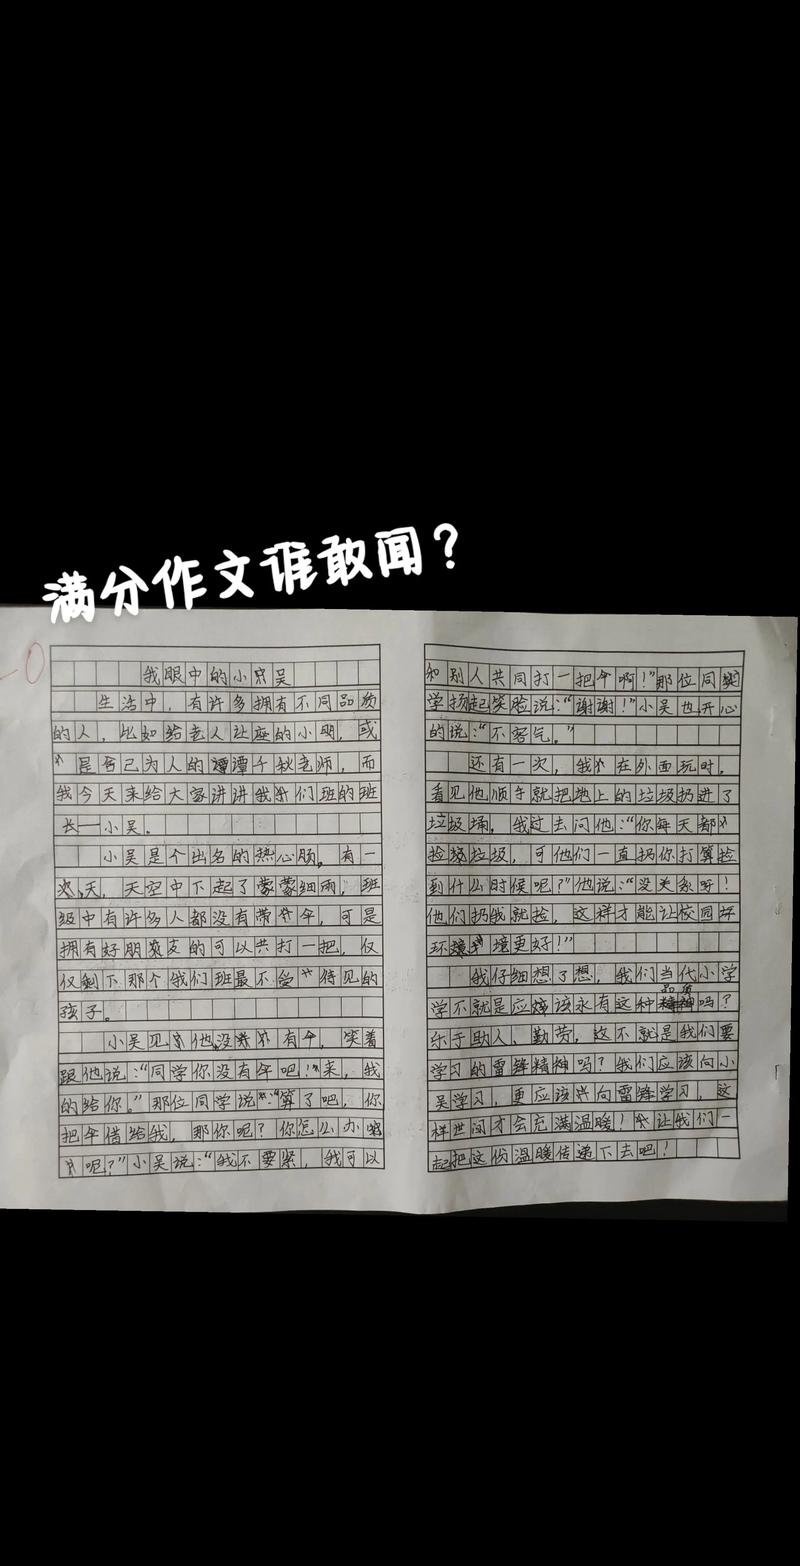 满分作文谁敢闻？
0
我眼中的小吴
生活中，有许多拥有不同品质
的人，比如给老人让座的小明，或
是舍己为人的谭千秋老师，而
我今天来给大家讲讲我们班的班
长——小吴。
小吴是个出名的热心肠。有一
次，天空中下起了蒙蒙细雨，班
级中有许多人都没有带伞，可是
拥有好朋友的可以共打一把，仅
仅剩下那个我们班最不受待见的
孩子。
小吴见他没有伞，笑着
跟他说：“同学你没有伞吧！来，我
的给你。”那位同学说：“算了吧，你
把伞借给我，那你呢？你怎么办
呢？”小吴说：“我不要紧，我可以
和别人共同打一把伞啊！”那位同
学扬起笑脸说：“谢谢！”小吴也开心
的说：“不客气。”
还有一次，我在外面玩时，
看见他顺手就把地上的垃圾扔进了
垃圾桶，我过去问他：“你每天都
捡垃圾，可他们一直扔你打算捡
到什么时候呢？”他说：“没关系呀！
他们扔我就捡，这样才能让校园环
环境更好！”
我仔细想了想，我们当代小学
学不就是应该永有这种品质吗？
乐于助人、勤劳，这不就是我们要
学习的雷锋精神吗？我们应该向小
吴学习，更应该向雷锋学习，这
样世间才会充满温暖！让我们一
起把这份温暖传递下去吧！